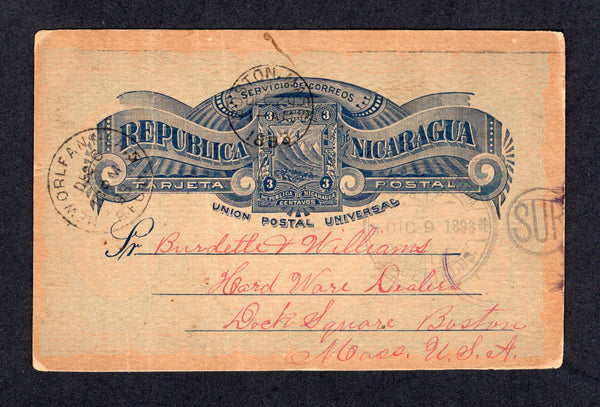 SERVICIO DE CORREOS
REPUBLICA DE NICARAGUA
3 3
3 3
REPUBLICA DE NICARAGUA
CENTAVOS
TARJETA POSTAL
UNION POSTAL UNIVERSAL
DIC 9 1893
SUR
Sr Burdette & Williams
Hard Ware Dealers
Dock Square Boston
Mass. U.S.A.